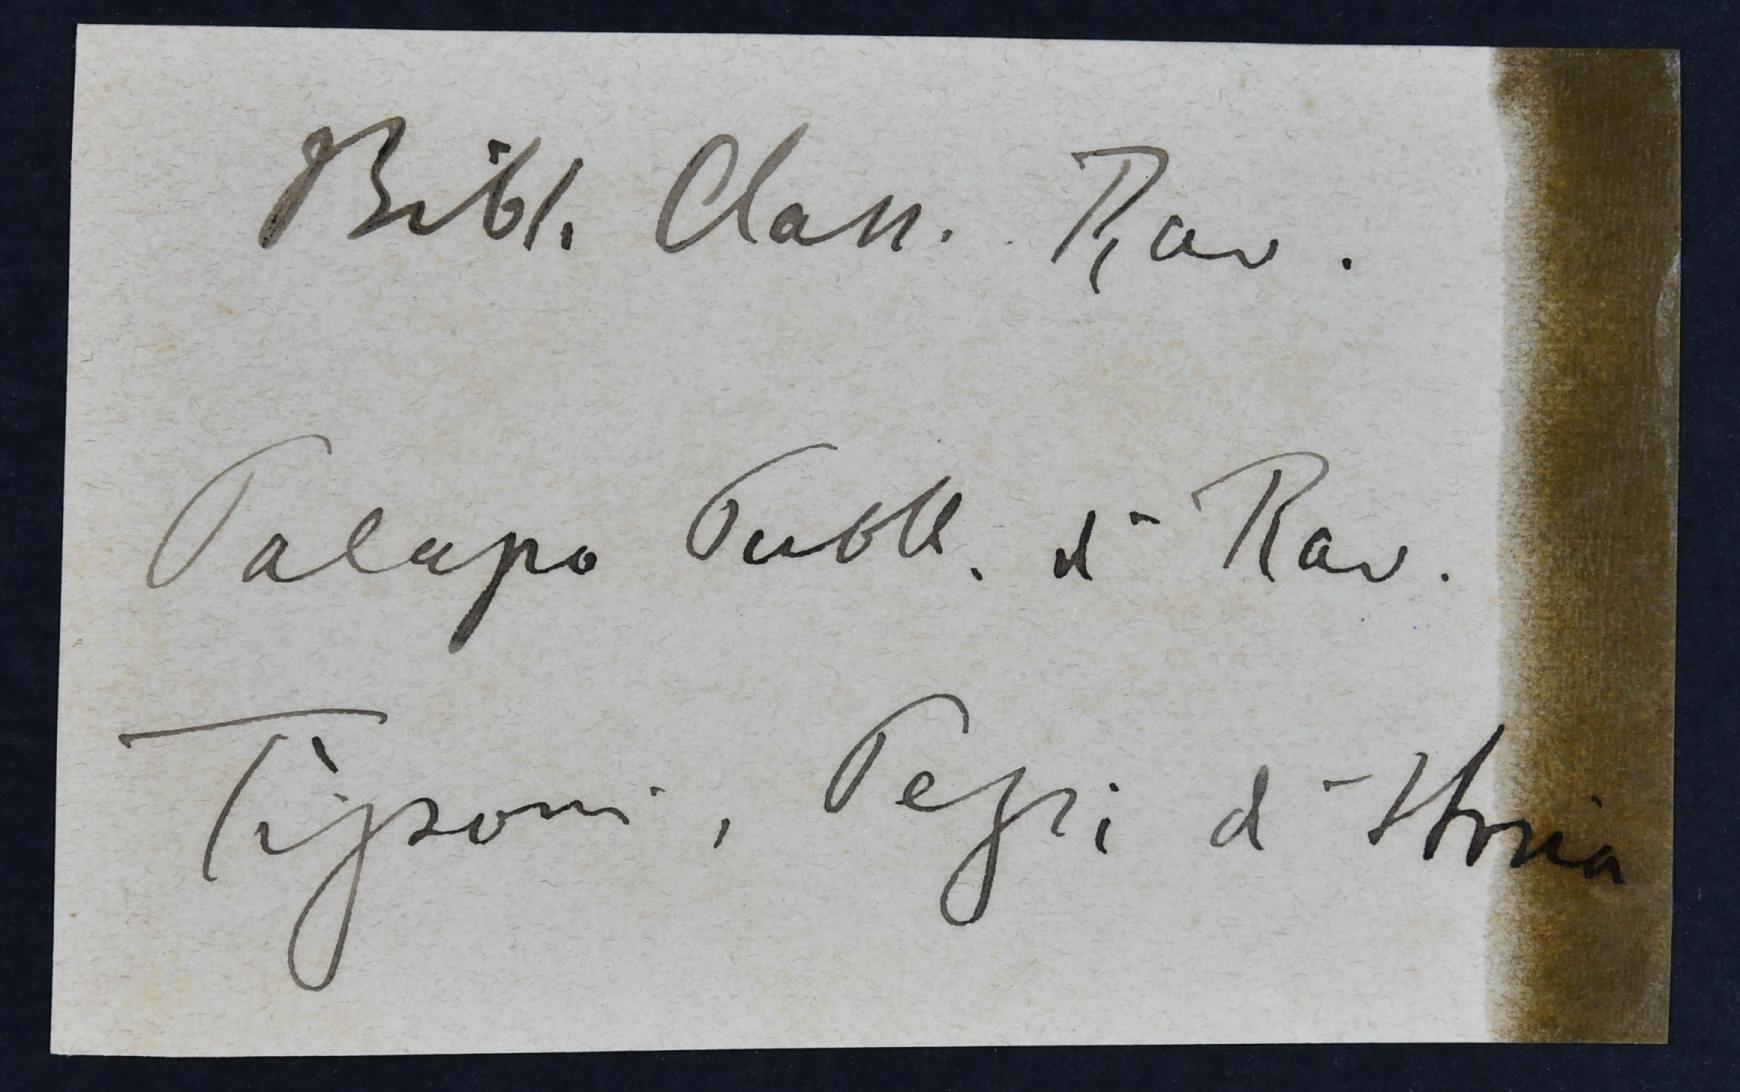 Bibl. Class. Rav.
Palazzo Pubbl. di Rav.
Tizzoni, Pezzi di Storia